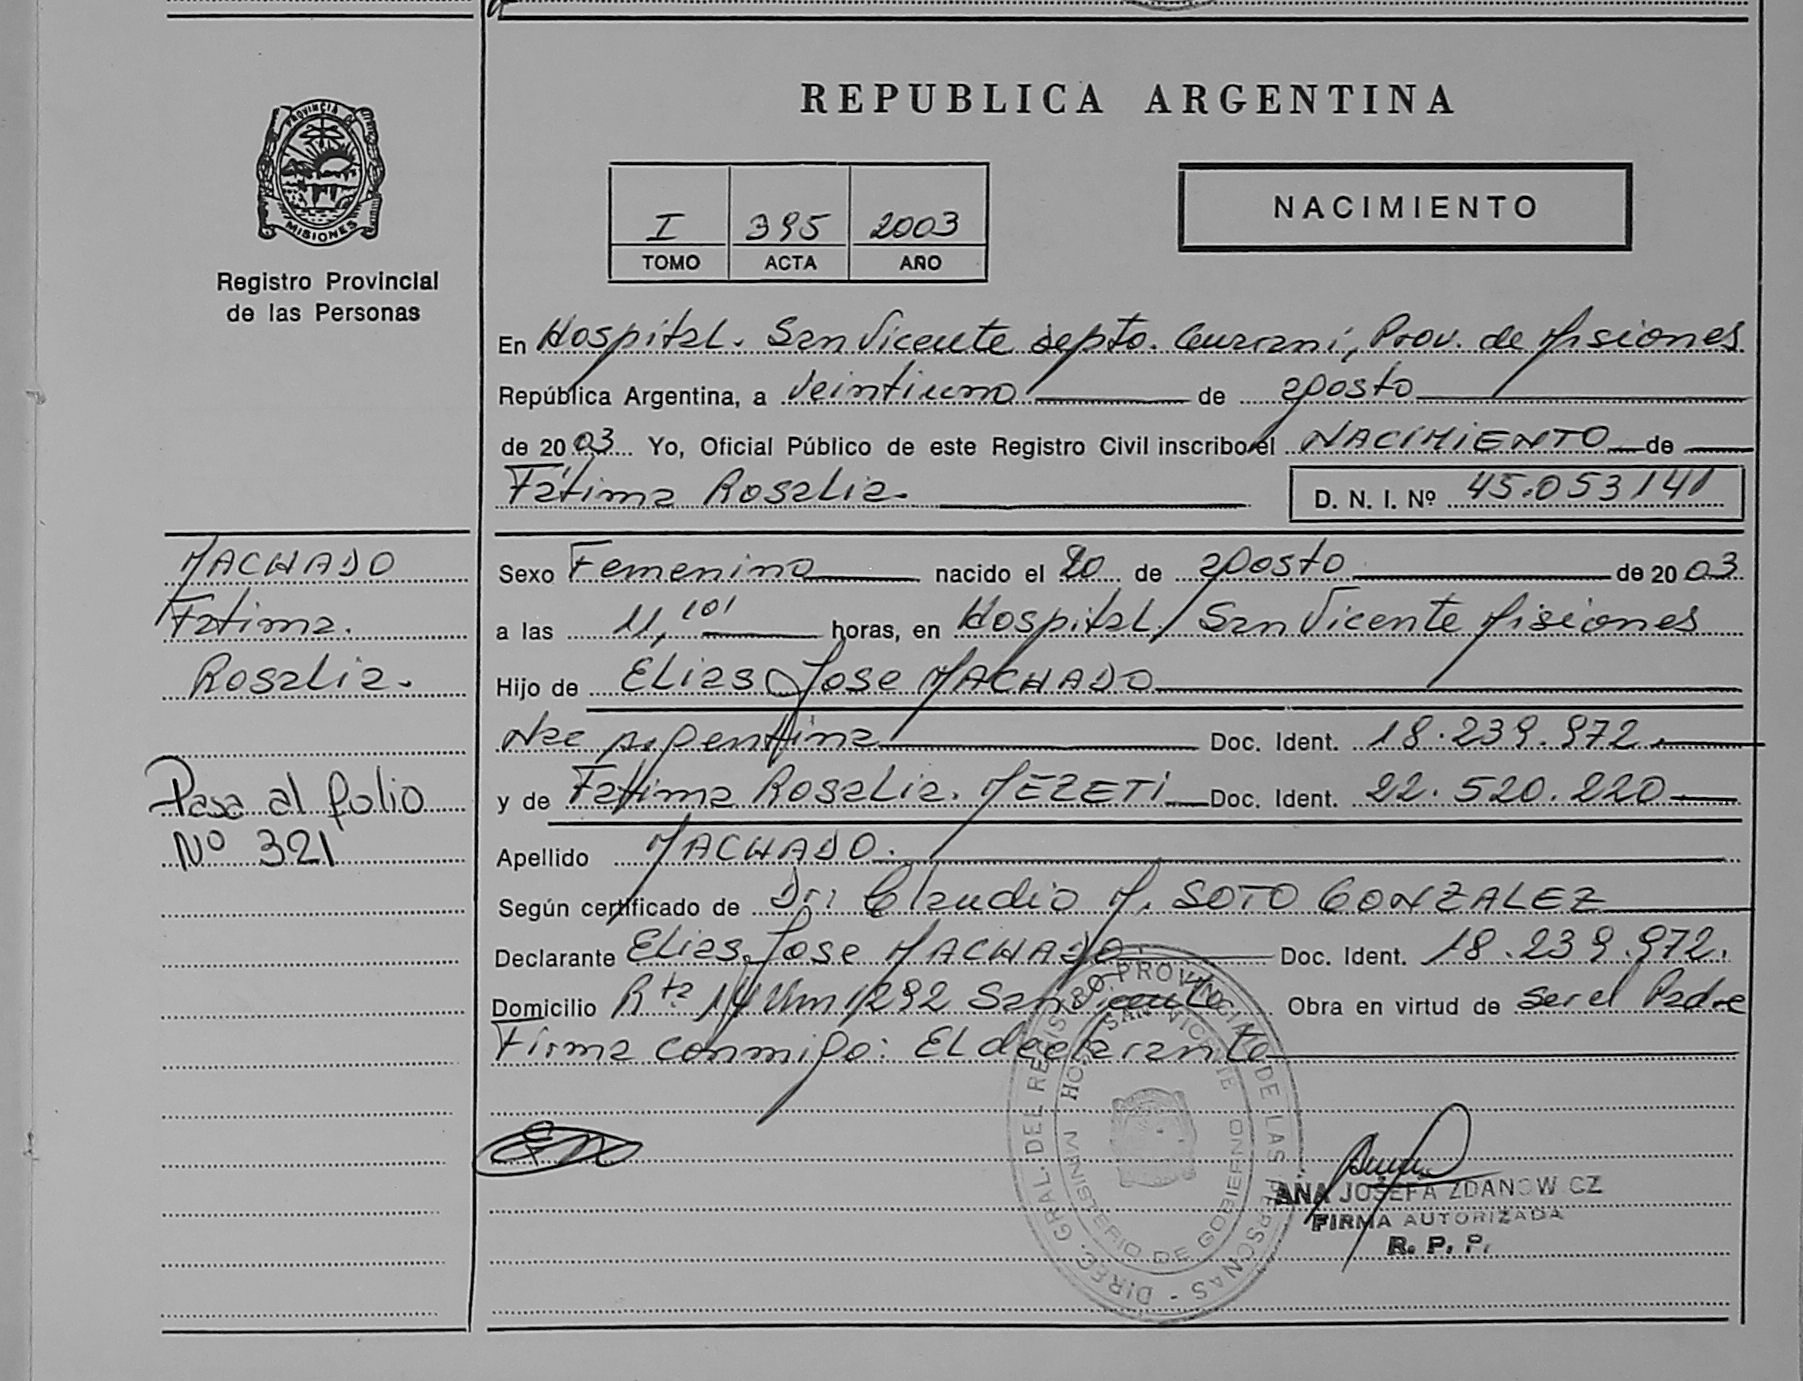 REPUBLICA ARGENTINA
PROVINCIA DE
MISIONES
Registro Provincial
de las Personas
I 395 2003
TOMO ACTA AÑO
NACIMIENTO
En Hospital. San Vicente depto. Guaraní, Prov. de Misiones
República Argentina, a veintiuno de agosto
de 2003 Yo, Oficial Público de este Registro Civil inscribo el NACIMIENTO de
Fátima Rosalia.
D. N. I. Nº 45.053141
MACHADO
Fatima.
Rosalia.
Pasa al folio
Nº 321
Sexo Femenino nacido el 20 de agosto de 2003
a las 11,10' horas, en Hospital, San Vicente Misiones
Hijo de Elias Jose MACHADO
Nac Argentina Doc. Ident. 18.239.972.
y de Fatima Rosalia. MEZETI Doc. Ident. 22.520.220
Apellido MACHADO.
Según certificado de Dr: Claudio M. SOTO GONZALEZ
Declarante Elias Jose MACHADO Doc. Ident. 18.239.972.
Domicilio Rta 14 Km 1292 San Vicente Obra en virtud de ser el Padre
Firma conmigo: El declarante
DIREC. GRAL. DEL REGISTRO PROVINCIAL DE LAS PERSONAS -
HOSP. SAN VICENTE
MINISTERIO DE GOBIERNO
ANA JOSEFA ZDANOWICZ
FIRMA AUTORIZADA
R. P. P.